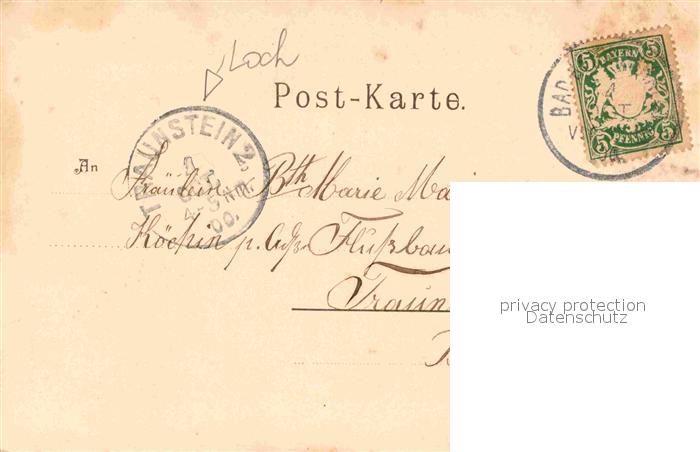 Loch
Post-Karte.
5 BAYERN 5
5 PFENNIG 5
BAD
TRAUNSTEIN 2.
4-5 NM.
00.
An Fräulein Bth. Marie
Köchin p. Adr. Flußbau
Traun
privacy protection
Datenschutz